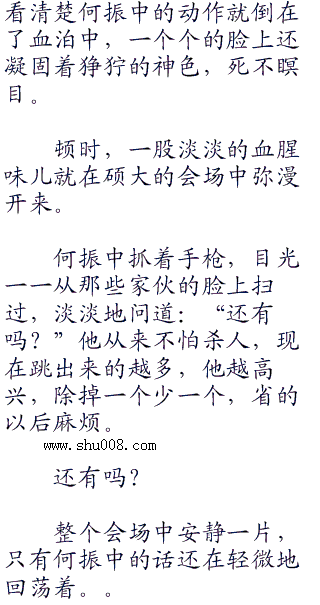 看清楚何振中的动作就倒在
了血泊中，一个个的脸上还
凝固着狰狞的神色，死不瞑
目。
顿时，一股淡淡的血腥
味儿就在硕大的会场中弥漫
开来。
何振中抓着手枪，目光
一一从那些家伙的脸上扫
过，淡淡地问道：“还有
吗？”他从来不怕杀人，现
在跳出来的越多，他越高
兴，除掉一个少一个，省的
以后麻烦。
www.shu008.com
还有吗？
整个会场中安静一片，
只有何振中的话还在轻微地
回荡着。。